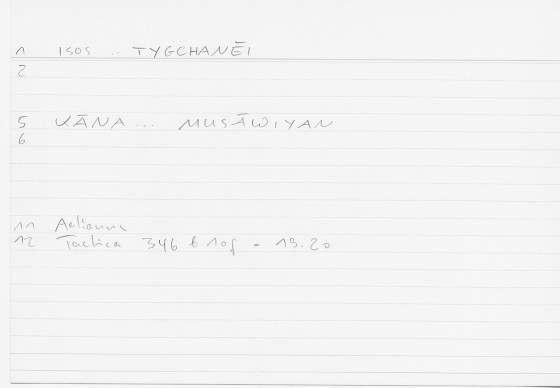 1 ISOS .. TYGCHANĒI
2
5 KĀNA ... MUSĀWIYAN
6
11 Aelianus
12 Tactica 346 b 10f - 19.20